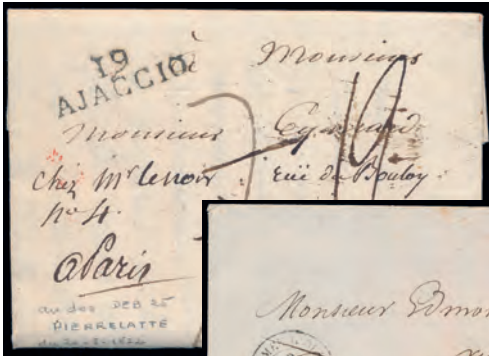 19
AJACCIO
à
Monsieur
Monsieur
chez Mr Lenoir
rue du Bouloy
no 4.
a Paris
au dos DEB 25
PIERRELATTE
Monsieur Edmo